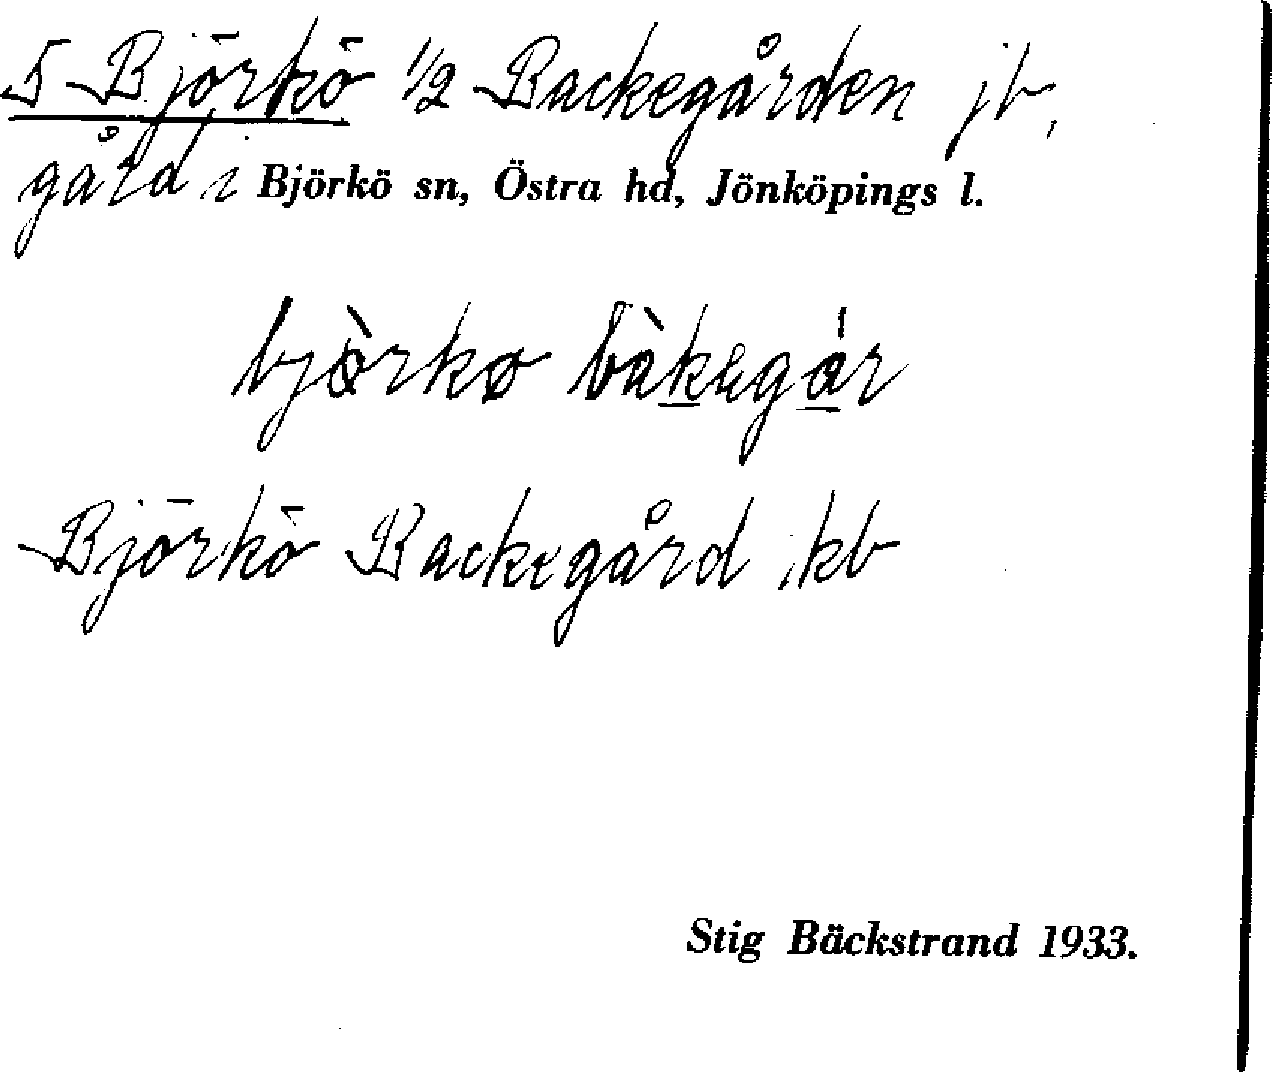 5 Björkö 1/2 Backegården jb,
gård i Björkö sn, Östra hd, Jönköpings l.
bjòrkø bàkegár
Björkö Backegård, kb
Stig Bäckstrand 1933.